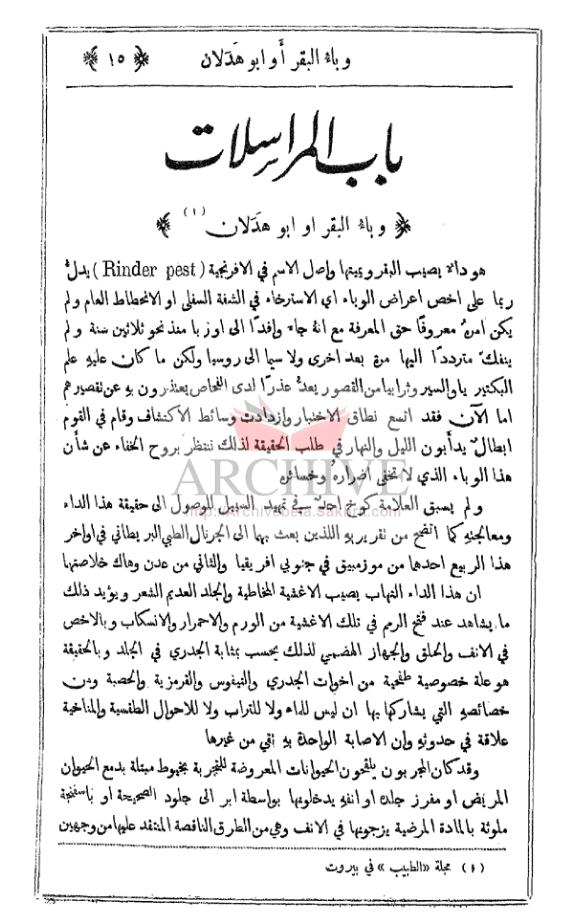 وباء البقر أو ابو هدلان ﴿ ١٥ ﴾
باب المراسلات
﴿ وباء البقر او ابو هدلان (١) ﴾
هو داء يصيب البقر ويميتها واصل الاسم في الافرنجية (Rinder pest) يدلُّ
ربما على اخص اعراض الوباء اي الاسترخاء في الشفة السفلى او الانحطاط العام ولم
يكن امرهُ معروفًا حق المعرفة مع انهُ جاء وافدًا الى اوربا منذ نحو ثلاثين سنة ولم
ينفك مترددًا اليها مرة بعد اخرى ولا سيما الى روسيا ولكن ما كان عليه علم
البكتيريا والسيروثرابيا من القصور يعدُّ عذرًا لدى الفحاص يعتذرون به عن تقصيرهم
اما الآن فقد اتسع نطاق الاختبار وازدادت وسائط الاكتشاف وقام في القوم
ابطالٌ يدأبون الليل والنهار في طلب الحقيقة لذلك ننتظر بروح الخفاء عن شأن
هذا الوباء الذي لا تخفى اضرارهُ وخسائرهُ
ARCHIVE
ولم يسبق العلامة كوخ احدٌ في تمهيد السبيل للوصول الى حقيقة هذا الداء
ومعالجته كما اتضح من تقريريه اللذين بعث بهما الى الجرنال الطبي البريطاني في اواخر
هذا الربيع احدهما من موزمبيق في جنوبي افريقيا والثاني من عدن وهاك خلاصتها
ان هذا الداء التهاب يصيب الاغشية المخاطية والجلد العديم الشعر ويؤيد ذلك
ما يشاهد عند فتح الرمم في تلك الاغشية من الورم والاحمرار والانسكاب وبالاخص
في الانف والحلق والجهاز الهضمي لذلك يحسب بمثابة الجدري في الجلد وبالحقيقة
هو علة خصوصية طفحية من اخوات الجدري والتيفوس والقرمزية والحصبة ومن
خصائصهِ التي يشاركها بها ان ليس للماء ولا للتراب ولا للاحوال الطقسية والمناخية
علاقة في حدوثه وان الاصابة الواحدة به تقي من غيرها
وقد كان المجربون يلقحون الحيوانات المعروضة للتجربة بخيوط مبتلة بدمع الحيوان
المريض او مفرز جلده او انفه يدخلونها بواسطة ابر الى جلود الصحيحة او باسفنجة
ملوثة بالمادة المرضية يزجونها في الانف وهي من الطرق الناقصة المنتقد عليها من وجهين
(١) مجلة «الطبيب» في بيروت